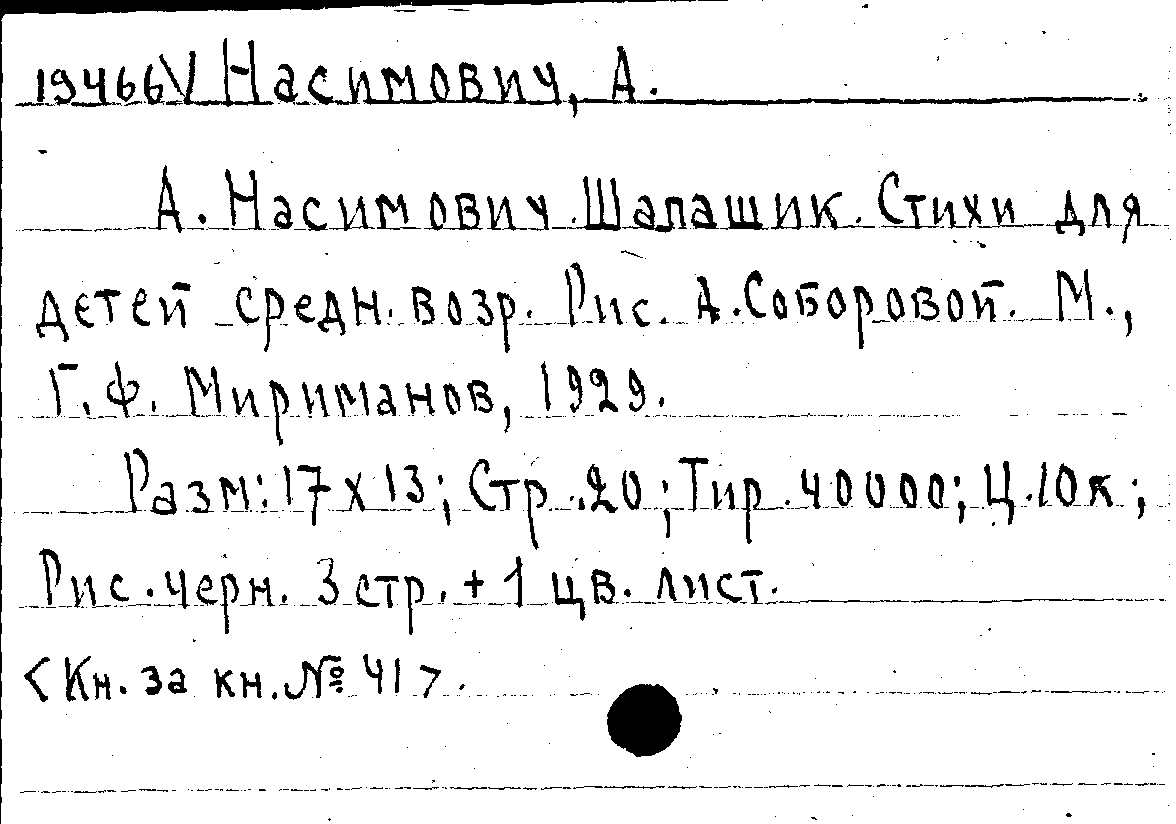 19466V Насимович, А.
А. Насимович. Шалашик. Стихи для
детей средн. возр. Рис. А. Соборовой. М.,
Г. Ф. Мириманов, 1929.
Разм: 17 x 13; Стр. 20; Тир. 40000; Ц. 10 к;
Рис. черн. 3 стр. + 1 цв. лист.
<Кн. за кн. № 41>.